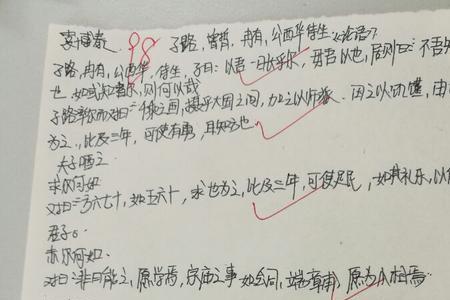 98 子路,曾皙,冉有,公西华侍坐《论语》
子路,冉有,公西华,侍坐,子曰:以吾一日长乎尔,毋吾以也,居则曰:不吾知
也,如或知尔,则何以哉
子路率尔而对曰:千乘之国,摄乎大国之间,加之以师旅,因之以饥馑,由
为之,比及三年,可使有勇,且知方也
夫子哂之
求尔何如
对曰:方六七十,如五六十,求也为之,比及三年,可使足民,如其礼乐,以
君子。
赤尔何如.
对曰:非曰能之,愿学焉,宗庙之事 如会同,端章甫,愿为小相焉